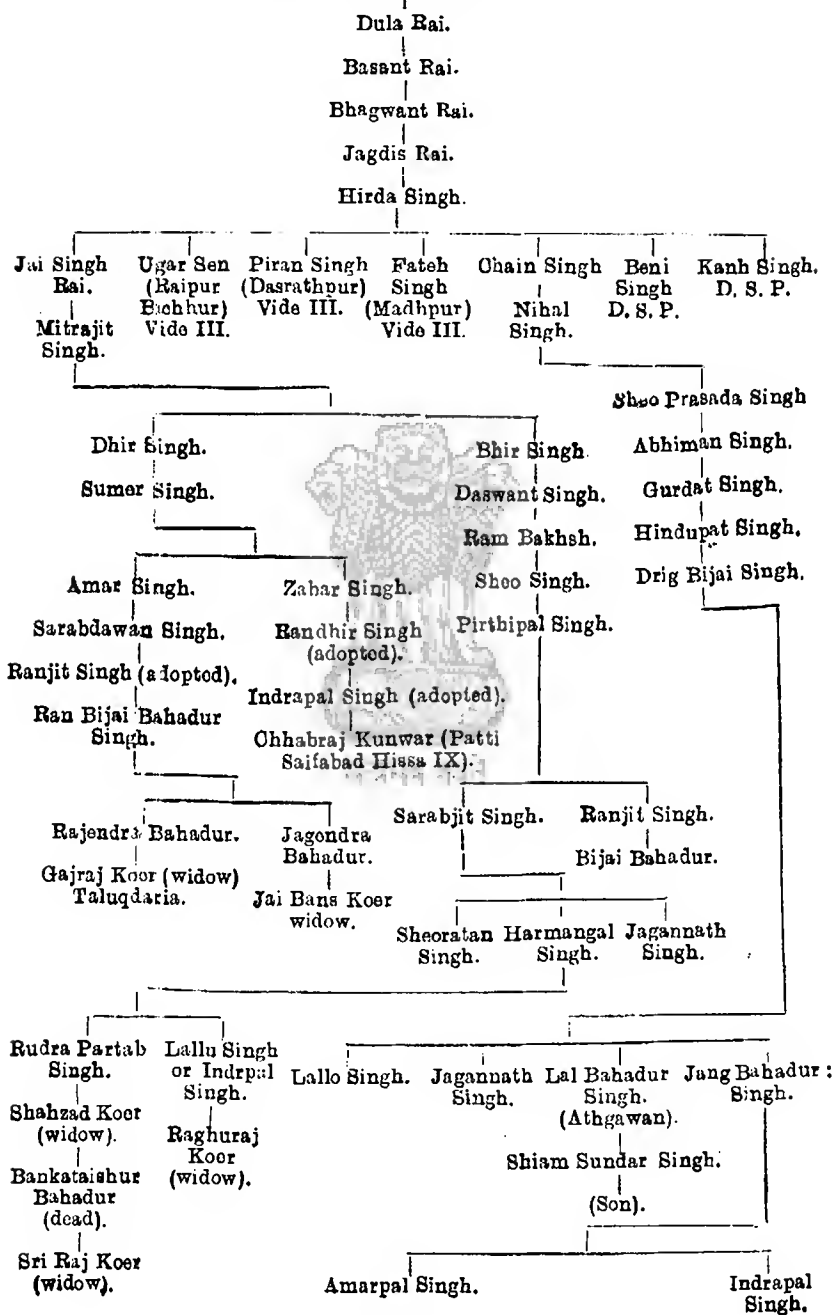 Dula Rai.
Basant Rai.
Bhagwant Rai.
Jagdis Rai.
Hirda Singh.
Jai Singh Rai.
Mitrajit Singh.
Ugar Sen (Raipur Bichhur) Vide III.
Piran Singh (Dasrathpur) Vide III.
Fateh Singh (Madhpur) Vide III.
Chain Singh
Nihal Singh.
Beni Singh D. S. P.
Kanh Singh. D. S. P.
Dhir Singh.
Sumer Singh.
Bhir Singh
Daswant Singh.
Ram Bakhsh.
Sheo Singh.
Pirthipal Singh.
Sheo Prasada Singh
Abhiman Singh.
Gurdat Singh.
Hindupat Singh.
Drig Bijai Singh.
Amar Singh.
Sarabdawan Singh.
Ranjit Singh (adopted).
Ran Bijai Bahadur Singh.
Zabar Singh.
Randhir Singh (adopted).
Indrapal Singh (adopted).
Chhabraj Kunwar (Patti Saifabad Hissa IX).
Rajendra Bahadur.
Gajraj Koor (widow) Taluqdaria.
Jagendra Bahadur.
Jai Bans Koer widow.
Sarabjit Singh.
Ranjit Singh.
Bijai Bahadur.
Sheoratan Singh.
Harmangal Singh.
Jagannath Singh.
Rudra Partab Singh.
Shahzad Koer (widow).
Bankataishur Bahadur (dead).
Sri Raj Koer (widow).
Lallu Singh or Indrpal Singh.
Raghuraj Koer (widow).
Lallo Singh.
Jagannath Singh.
Lal Bahadur Singh. (Athgawan).
Shiam Sundar Singh.
(Son).
Jang Bahadur Singh.
Amarpal Singh.
Indrapal Singh.